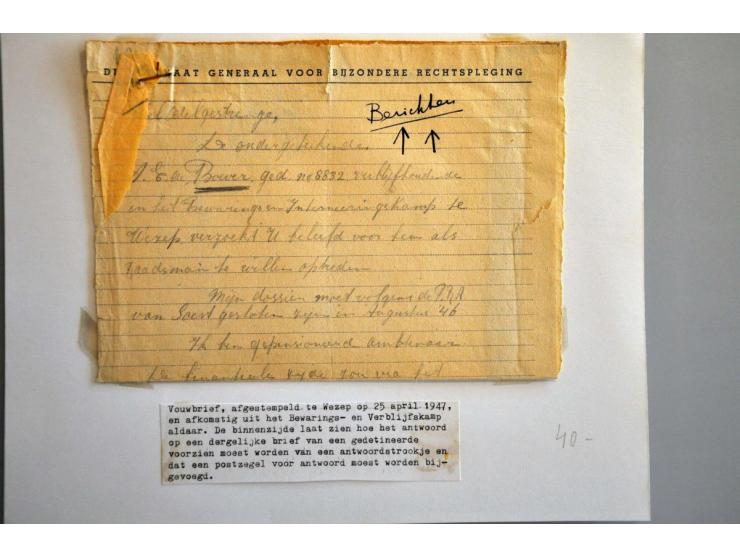 GENERAAL VOOR BIJZONDERE RECHTSPLEGING
Berichten
De ondergetekende
J. E. de Bower ged no 8832 verblijfhoudende
in het Bewarings en Interneeringskamp te
Wezep verzoekt U beleefd voor hem als
raadsman te willen optreden
Mijn dossier moet volgens de P.R.A
van Soest gesloten zijn in Augustus 46
Ik ben gepensioneerd ambtenaar
De financieele zijde zou via het
Vouwbrief, afgestempeld te Wezep op 25 april 1947,
en afkomstig uit het Bewarings- en Verblijfskamp
aldaar. De binnenzijde laat zien hoe het antwoord
op een dergelijke brief van een gedetineerde
voorzien moest worden van een antwoordstrookje en
dat een postzegel voor antwoord moest worden bij-
gevoegd.
40-